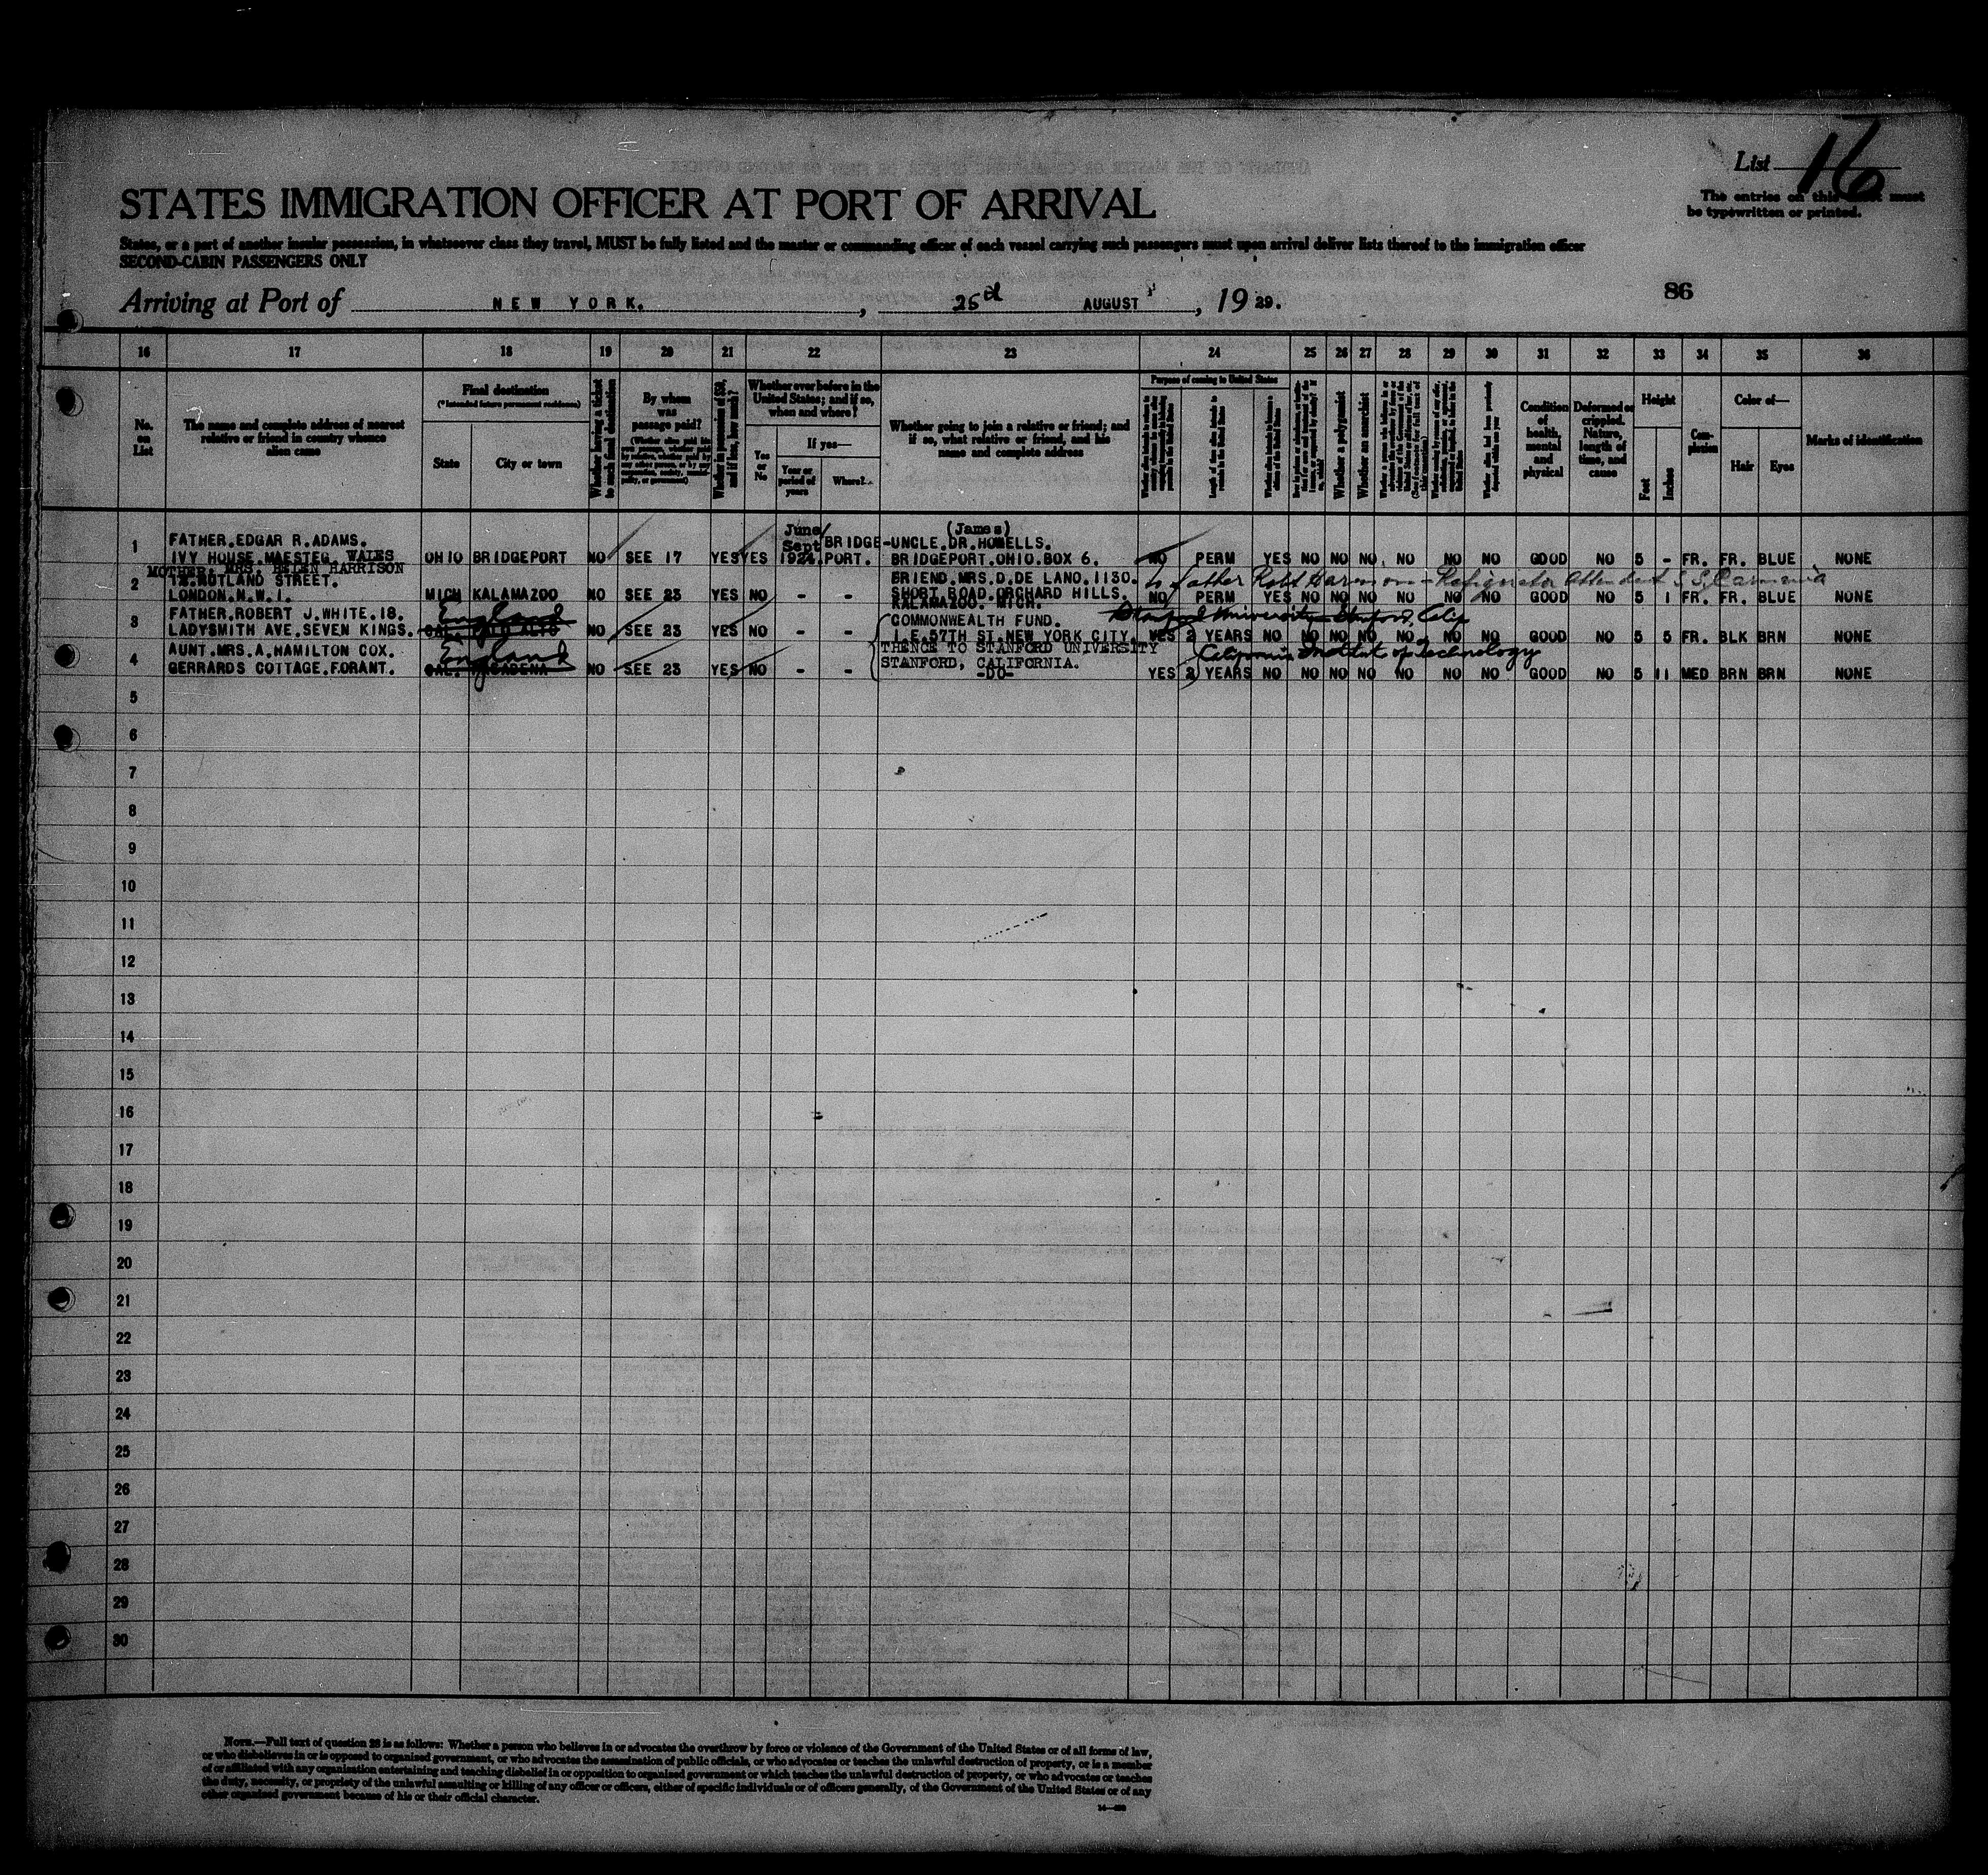 List 16
The entries on this sheet must
be typewritten or printed.
STATES IMMIGRATION OFFICER AT PORT OF ARRIVAL
States, or a part of another insular possession, in whatsoever class they travel, MUST be fully listed and the master or commanding officer of each vessel carrying such passengers must upon arrival deliver lists thereof to the immigration officer
SECOND-CABIN PASSENGERS ONLY
Arriving at Port of NEW YORK. , 25d AUGUST , 19 29.
86
16 17 18 19 20 21 22 23 24 25 26 27 28 29 30 31 32 33 34 35 36
No. on List
The name and complete address of nearest relative or friend in country whence alien came
Final destination
(*Intended future permanent residence)
State
City or town
Whether having a ticket to such final destination
By whom was passage paid?
Whether in possession of $50, and if less, how much?
Whether ever before in the United States; and if so, when and where?
Yes or No
If yes—
Year or period of years
Where?
Whether going to join a relative or friend; and if so, what relative or friend, and his name and complete address
Purpose of coming to United States
Length of time alien intends to remain in the United States
Whether a polygamist
Whether an anarchist
Condition of health, mental and physical
Deformed or crippled. Nature, length of time, and cause
Height
Feet
Inches
Complexion
Color of—
Hair
Eyes
Marks of identification
1 FATHER.EDGAR R.ADAMS.
IVY HOUSE.MAESTEG. WALES OHIO BRIDGEPORT NO SEE 17 YES YES June/Sept 1924. BRIDGE-PORT. (James) UNCLE.DR.HOWELLS. BRIDGEPORT.OHIO.BOX 6. NO PERM YES NO NO NO NO NO NO GOOD NO 5 - FR. FR. BLUE NONE
MOTHER, MRS. HELEN HARRISON
2 12.RUTLAND STREET.
LONDON.N.W.I. MICH KALAMAZOO NO SEE 23 YES NO - - FRIEND.MRS.D.DE LANO.1130. SHORT ROAD.ORCHARD HILLS. KALAMAZOO. MICH. NO PERM YES NO NO NO NO NO NO GOOD NO 5 1 FR. FR. BLUE NONE
to father Robt Harrison - Refrigerator Attendant S.S. Carmania
3 FATHER.ROBERT J.WHITE.18.
LADYSMITH AVE.SEVEN KINGS. CAL. PALO ALTO England NO SEE 23 YES NO - - COMMONWEALTH FUND. 1.E.57TH ST.NEW YORK CITY. YES 2 YEARS NO NO NO NO NO NO NO GOOD NO 5 5 FR. BLK BRN NONE
Stanford University Stanford, Calif
4 AUNT.MRS.A.HAMILTON COX.
GERRARDS COTTAGE.F.GRANT. CAL. PASADENA England NO SEE 23 YES NO - - THENCE TO STANFORD UNIVERSITY STANFORD, CALIFORNIA. -DO- YES 2 YEARS NO NO NO NO NO NO NO GOOD NO 5 11 MED BRN BRN NONE
California Institute of Technology
5
6
7
8
9
10
11
12
13
14
15
16
17
18
19
20
21
22
23
24
25
26
27
28
29
30
NOTE.—Full text of question 28 is as follows: Whether a person who believes in or advocates the overthrow by force or violence of the Government of the United States or of all forms of law,
or who disbelieves in or is opposed to organized government, or who advocates the assassination of public officials, or who advocates or teaches the unlawful destruction of property, or is a member
of or affiliated with any organization entertaining and teaching disbelief in or opposition to organized government or which teaches the unlawful destruction of property, or who advocates or teaches
the duty, necessity, or propriety of the unlawful assaulting or killing of any officer or officers, either of specific individuals or of officers generally, of the Government of the United States or of any
other organized government because of his or their official character.